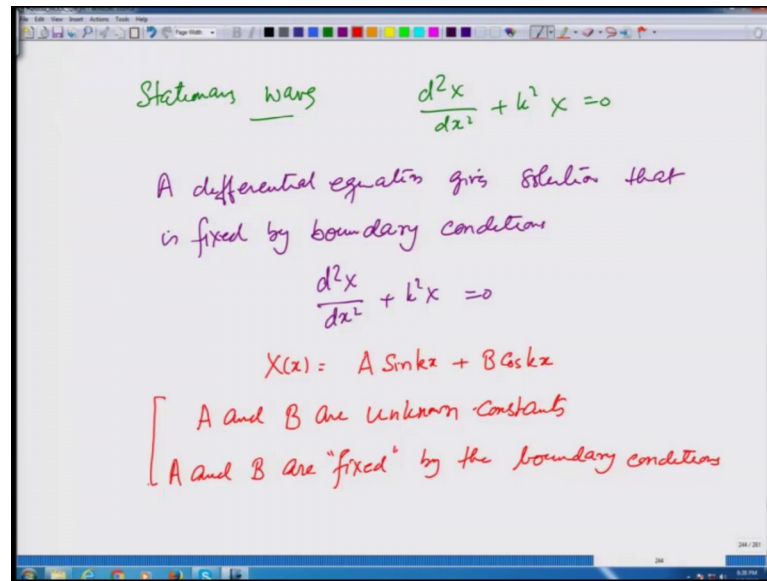 File Edit View Insert Actions Tools Help
Page Width
Stationary wave d²X/dx² + k² X = 0
A differential equation gives solution that
is fixed by boundary conditions
d²X/dx² + k²X = 0
X(x) = A Sin kx + B Cos kx
A and B are unknown constants
A and B are "fixed" by the boundary conditions
244 / 261
244
6:38 PM